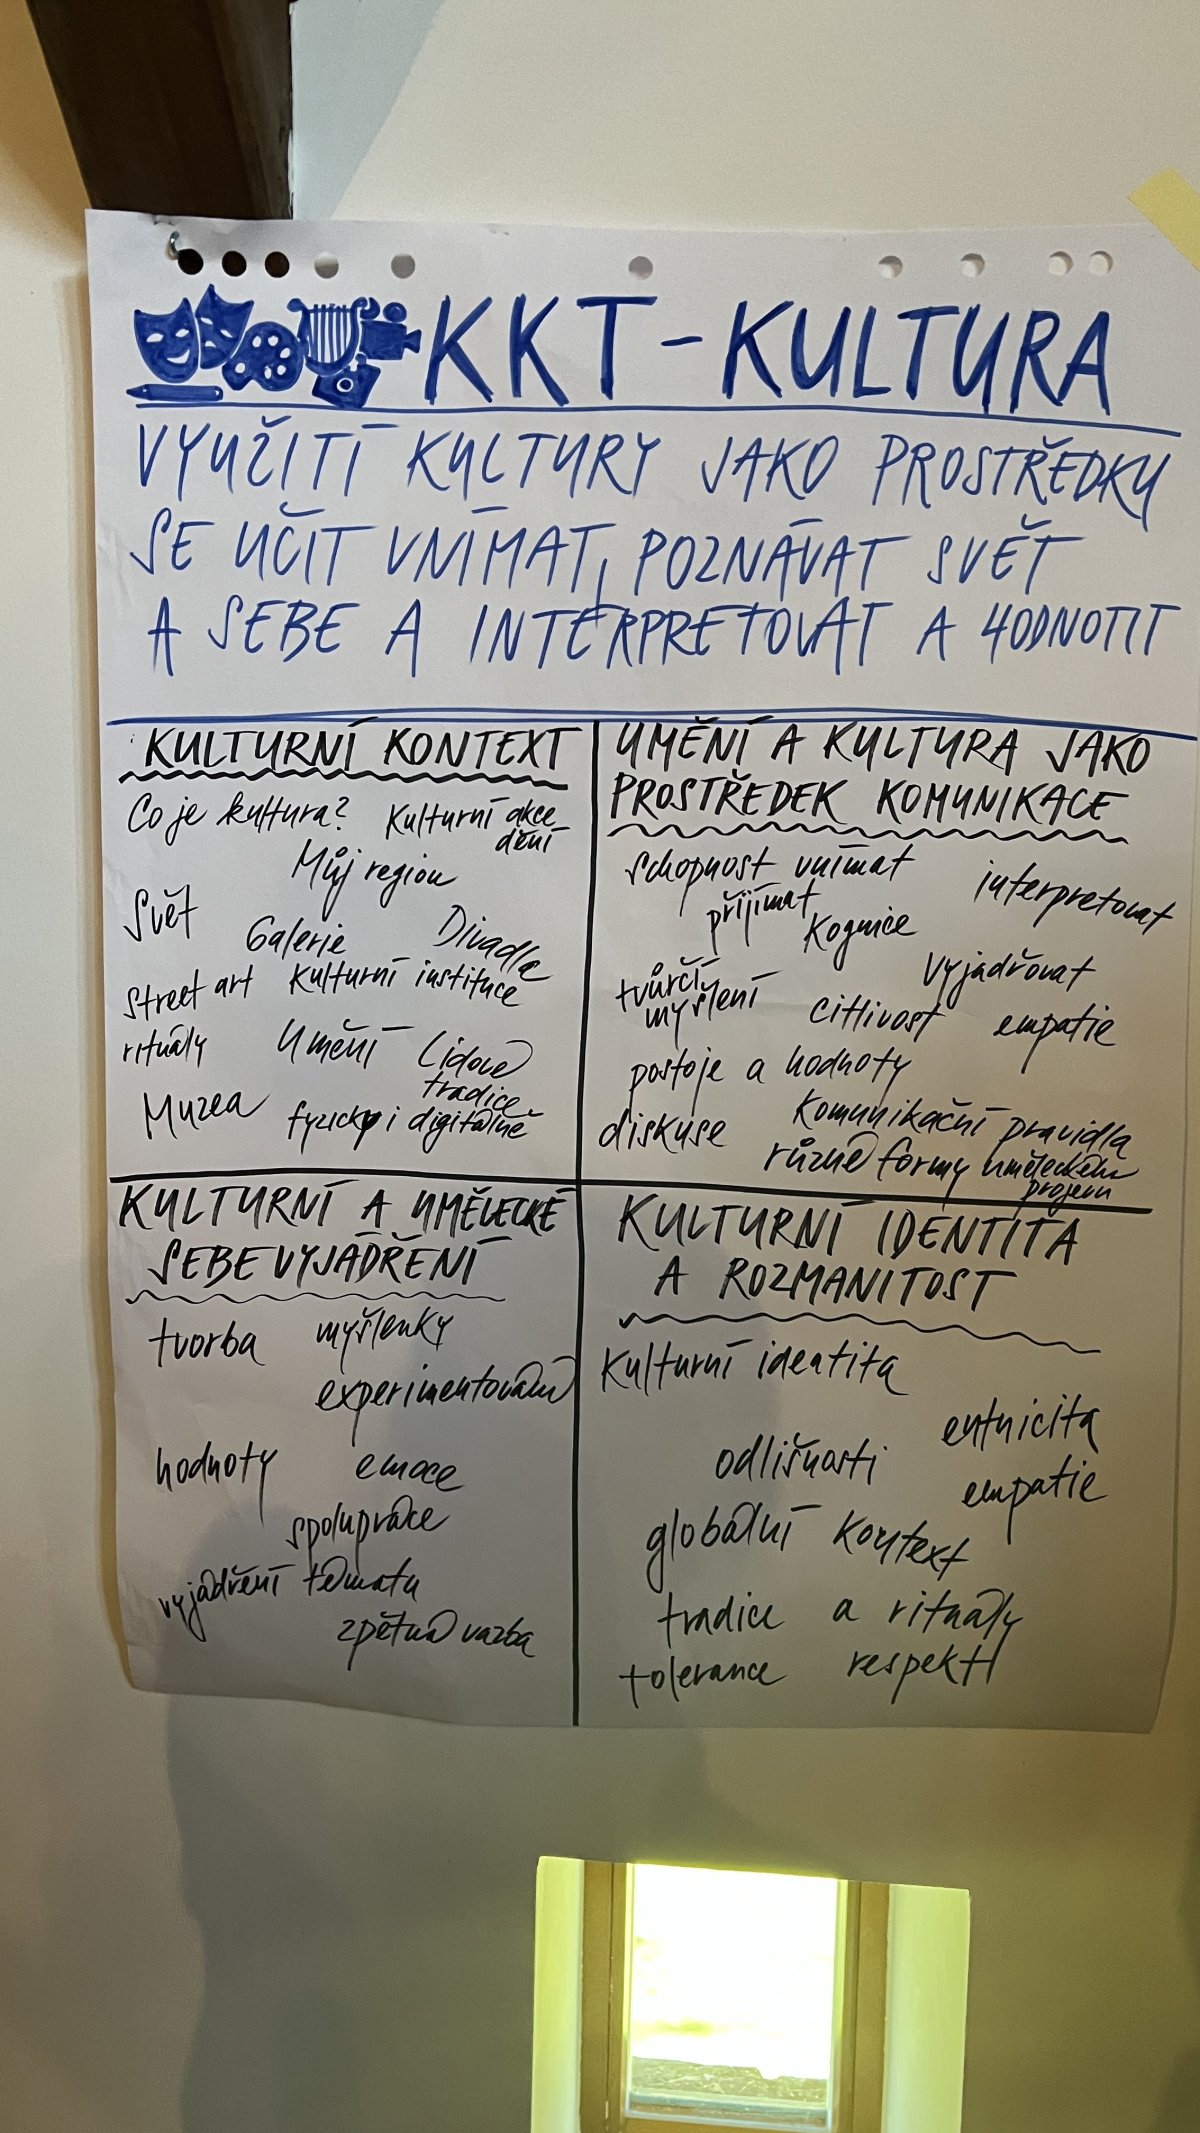 KKT - KULTURA
VYUŽITÍ KULTURY JAKO PROSTŘEDKY
SE UČIT VNÍMAT, POZNÁVAT SVĚT
A SEBE A INTERPRETOVAT A HODNOTIT
KULTURNÍ KONTEXT
Co je kultura? Kulturní akce
dění
Můj region
Svět
Galerie Divadla
street art kulturní instituce
rituály Umění Lidové
tradice
Muzea fyzicky i digitálně
UMĚNÍ A KULTURA JAKO
PROSTŘEDEK KOMUNIKACE
schopnost vnímat interpretovat
přijímat
Kognice
tvůrčí Vyjadřovat
myšlení citlivost empatie
postoje a hodnoty
diskuse komunikační pravidla
různé formy uměleckého
projevu
KULTURNÍ A UMĚLECKÉ
SEBEVYJÁDŘENÍ
tvorba myšlenky
experimentování
hodnoty emoce
spolupráce
vyjádření tématu
zpětná vazba
KULTURNÍ IDENTITA
A ROZMANITOST
kulturní identita
entnicita
odlišnosti
empatie
globální kontext
tradice a rituály
tolerance respekt